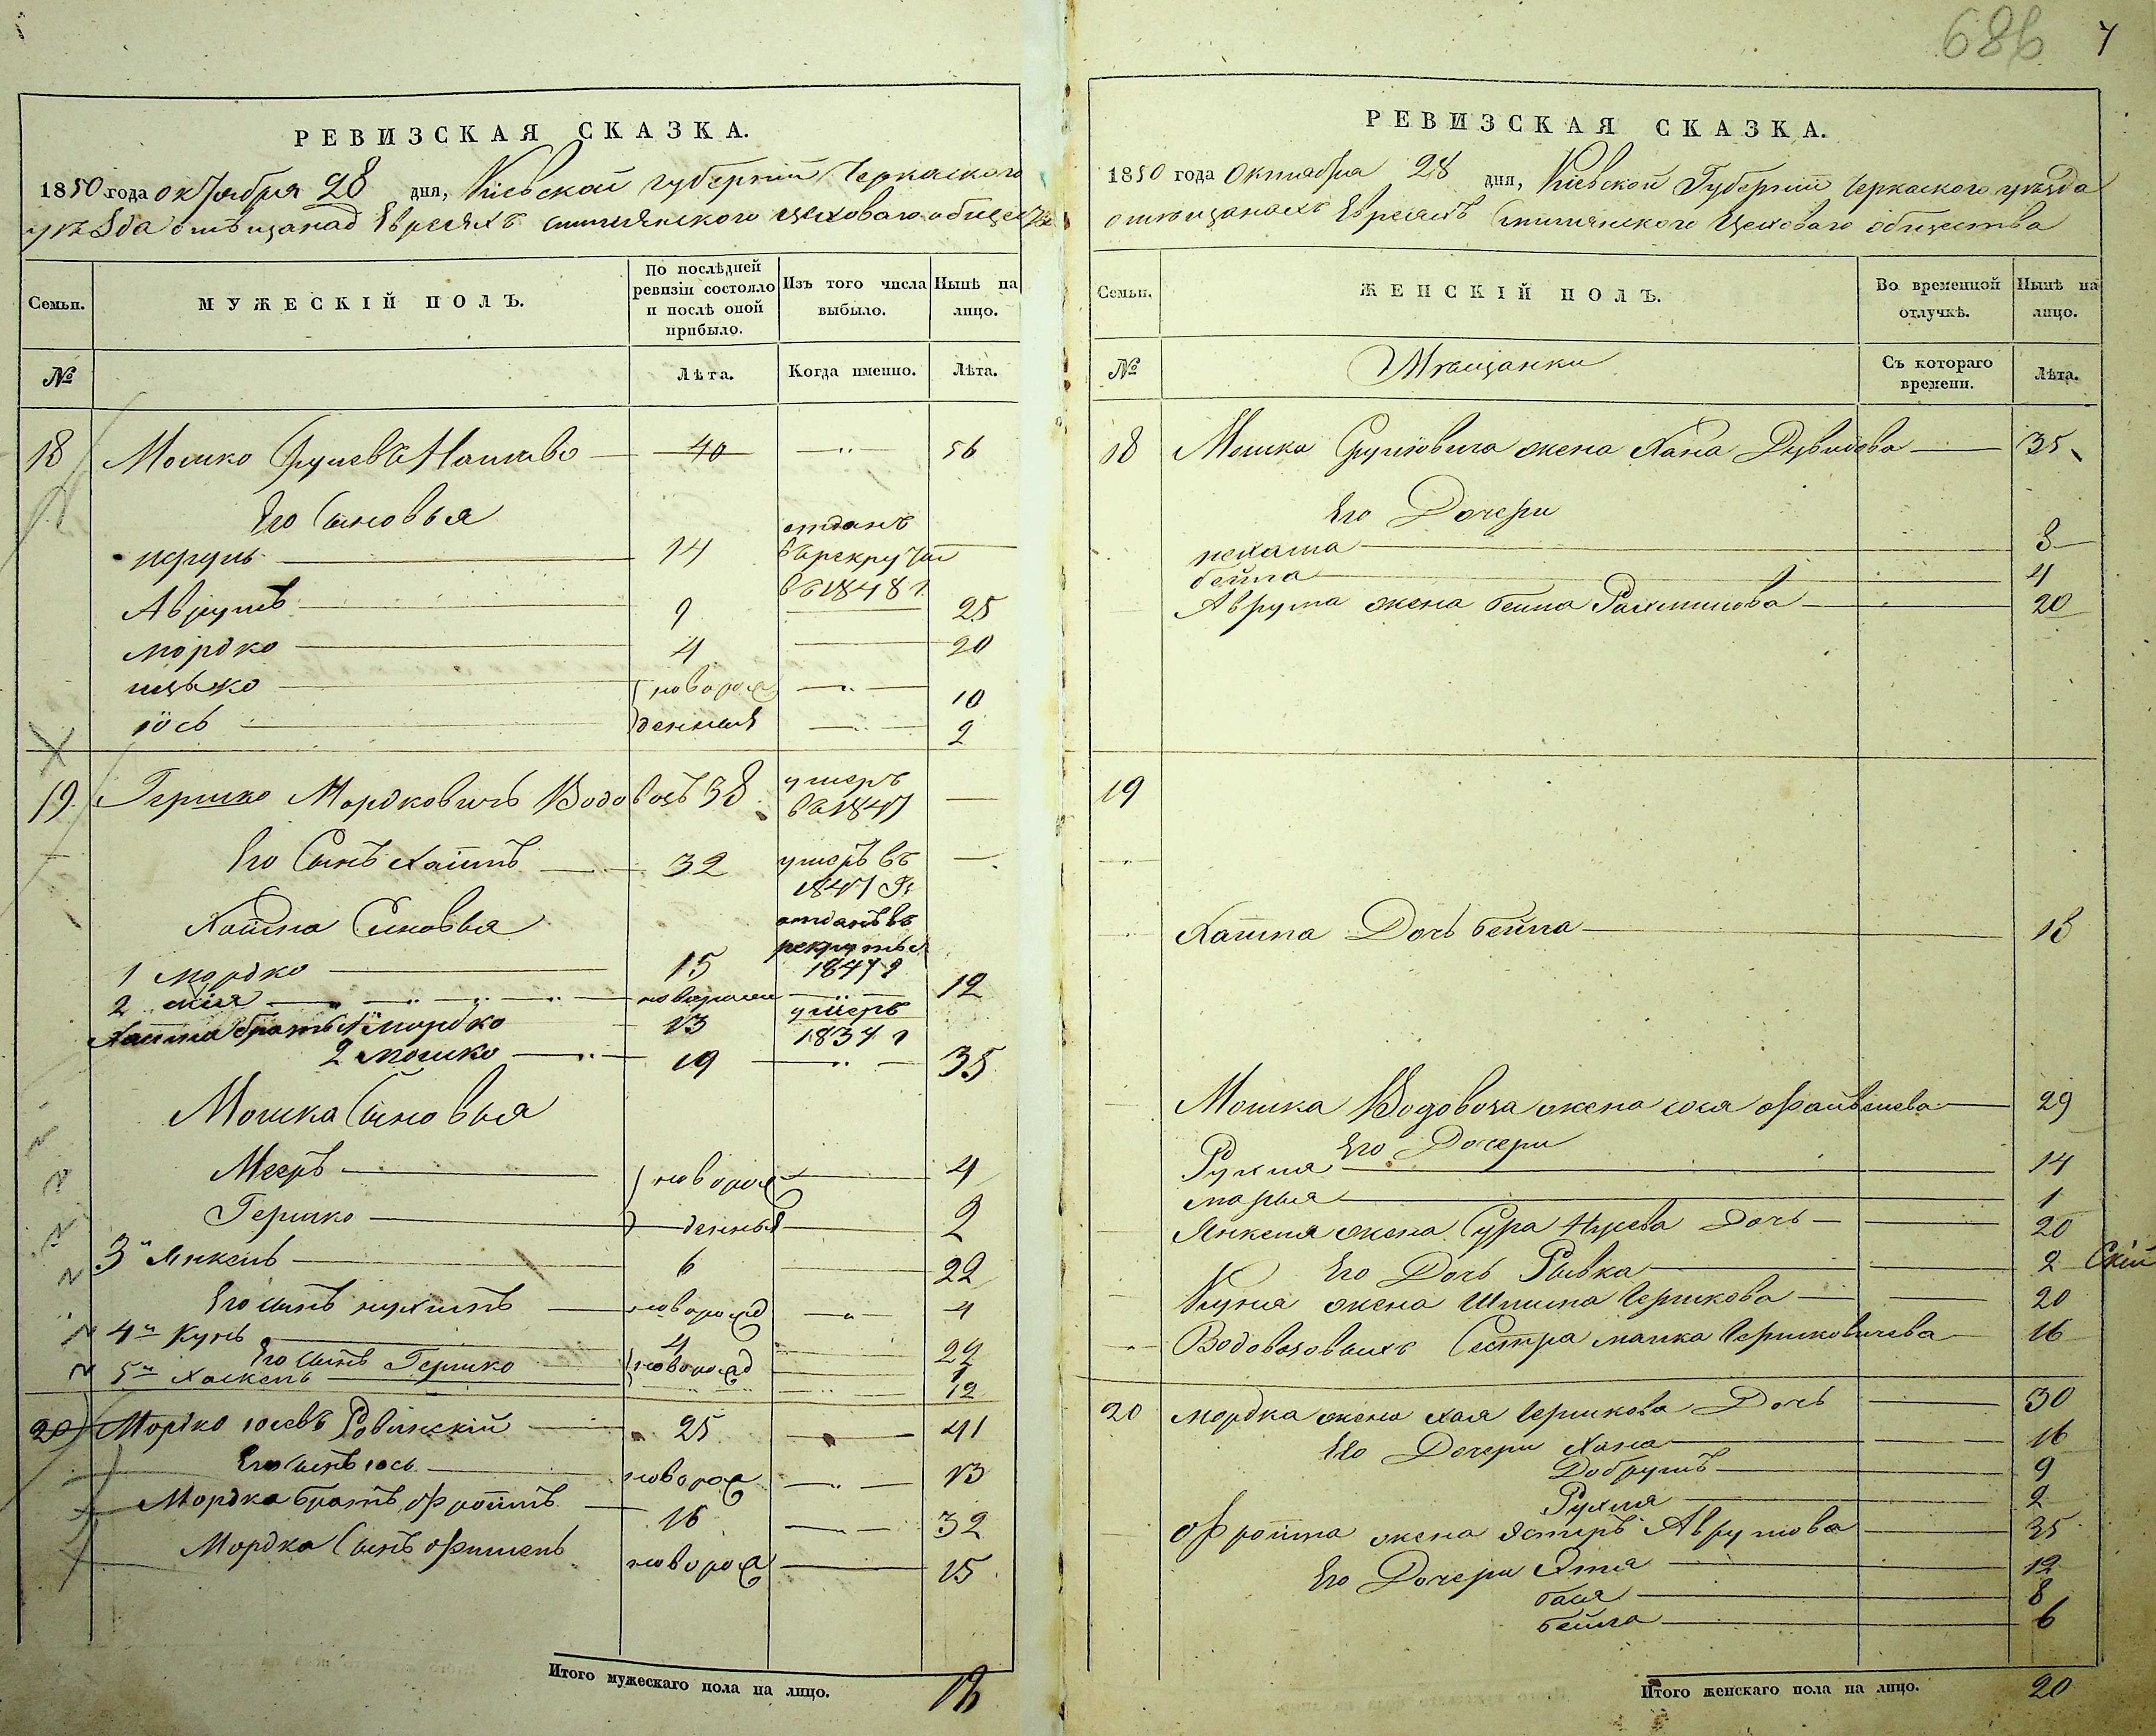 686 7
РЕВИЗСКАЯ СКАЗКА.
1850 года октября 28 дня, Кіевской губерніи Черкаского
уѣзда о мѣщанах Евреяхъ смилянского цеховаго общества
Семьи.
МУЖЕСКІЙ ПОЛЪ.
По послѣдней ревизіи состояло и послѣ оной прибыло.
Изъ того числа выбыло.
Нынѣ на лицо.
№
Лѣта.
Когда именно.
Лѣта.
18 Мошко Срулевъ 40 56
Его Сыновья
Сруль 14 отданъ въ рекруты въ 1848 г.
Аврумъ 9 25
Мордко 4 20
ицько новорож 10
іось денныя 2
19 Гершко Мордковичъ Водовозъ 38 умеръ въ 1847
Его Сынъ Хаимъ 32 умеръ въ 1847 г.
Хаима Сыновья
1 Мордко 15 отданъ въ рекруты 1847 г
2 новорож 12
Хаима братъ 1й Мордко 13 умеръ 1834 г
2 Мошко 19 35
Мошка Сыновья
Мееръ новорож 4
Гершко денныя 2
3й Янкель 6 22
Его сынъ нухимъ новорожд 4
4й Кунь 4 22
Его сынъ Гершко новорожд 1
5й Хаскель 12
20 Мордко іосевъ Ровинскій 25 41
Его сынъ іось новорож 13
Мордка братъ Фроимъ 16 32
Мордка Сынъ Фишель новорож 15
Итого мужескаго пола на лицо. 18
РЕВИЗСКАЯ СКАЗКА.
1850 года Октября 28 дня, Кіевской Губерніи Черкаского уѣзда
о мѣщанахъ Евреяхъ Смилянского Цеховаго общества
Семьи.
ЖЕНСКІЙ ПОЛЪ.
Во временной отлучкѣ.
Нынѣ на лицо.
№
Мѣщанки
Съ котораго времени.
Лѣта.
18 Мошка Срулiовича жена Хана Дувидова 35
Его Дочери
нехама 8
бейла 4
Аврума жена бейла Рахмилова 20
19
Хаима Дочь бейла 18
Мошка Водовоза жена сося Файвелева 29
Его Дочери
Рухля 14
марья 1
Янкеля жена Сура Нусева Дочь 20
Его Дочь Рывка 2
Куня жена Шпинца Гершкова 20
Водовозовыхъ Сестра малка Гершковичева 16
20 мордка жена хая Гершкова Дочь 30
Его Дочери Хана 16
Добрушъ 9
Рухля 2
Фроима жена эстеръ Аврумова 35
Его Дочери Этя 12
бася 8
бейла 6
Итого женскаго пола на лицо. 20